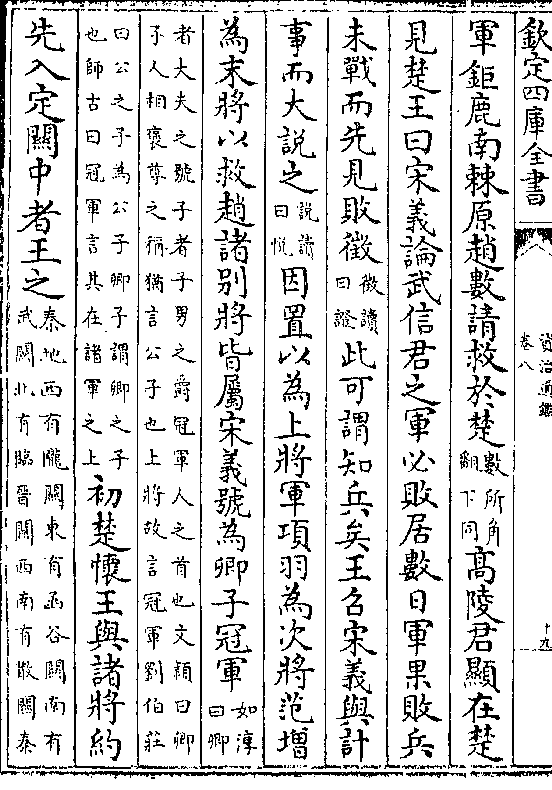 欽定四庫全書
資治通鑑
卷八
十九
軍鉅鹿南棘原趙數請救於楚數所角翻下同高陵君顯在楚
見楚王曰宋義論武信君之軍必敗居數日軍果敗兵
未戰而先見敗徵徵讀曰證此可謂知兵矣王召宋義與計
事而大説之説讀曰悦因置以為上將軍項羽為次將范增
為末將以救趙諸别將皆屬宋義號為卿子冠軍如淳曰卿
者大夫之號子者子男之爵冠軍人之首也文穎曰卿
子人相襃尊之稱猶言公子也上將故言冠軍劉伯莊
曰公之子為公子卿子謂卿之子也師古曰冠軍言其在諸軍之上初楚懷王與諸將約
先入定關中者王之秦地西有隴關東有函谷關南有武關北有臨晉關西南有散關秦